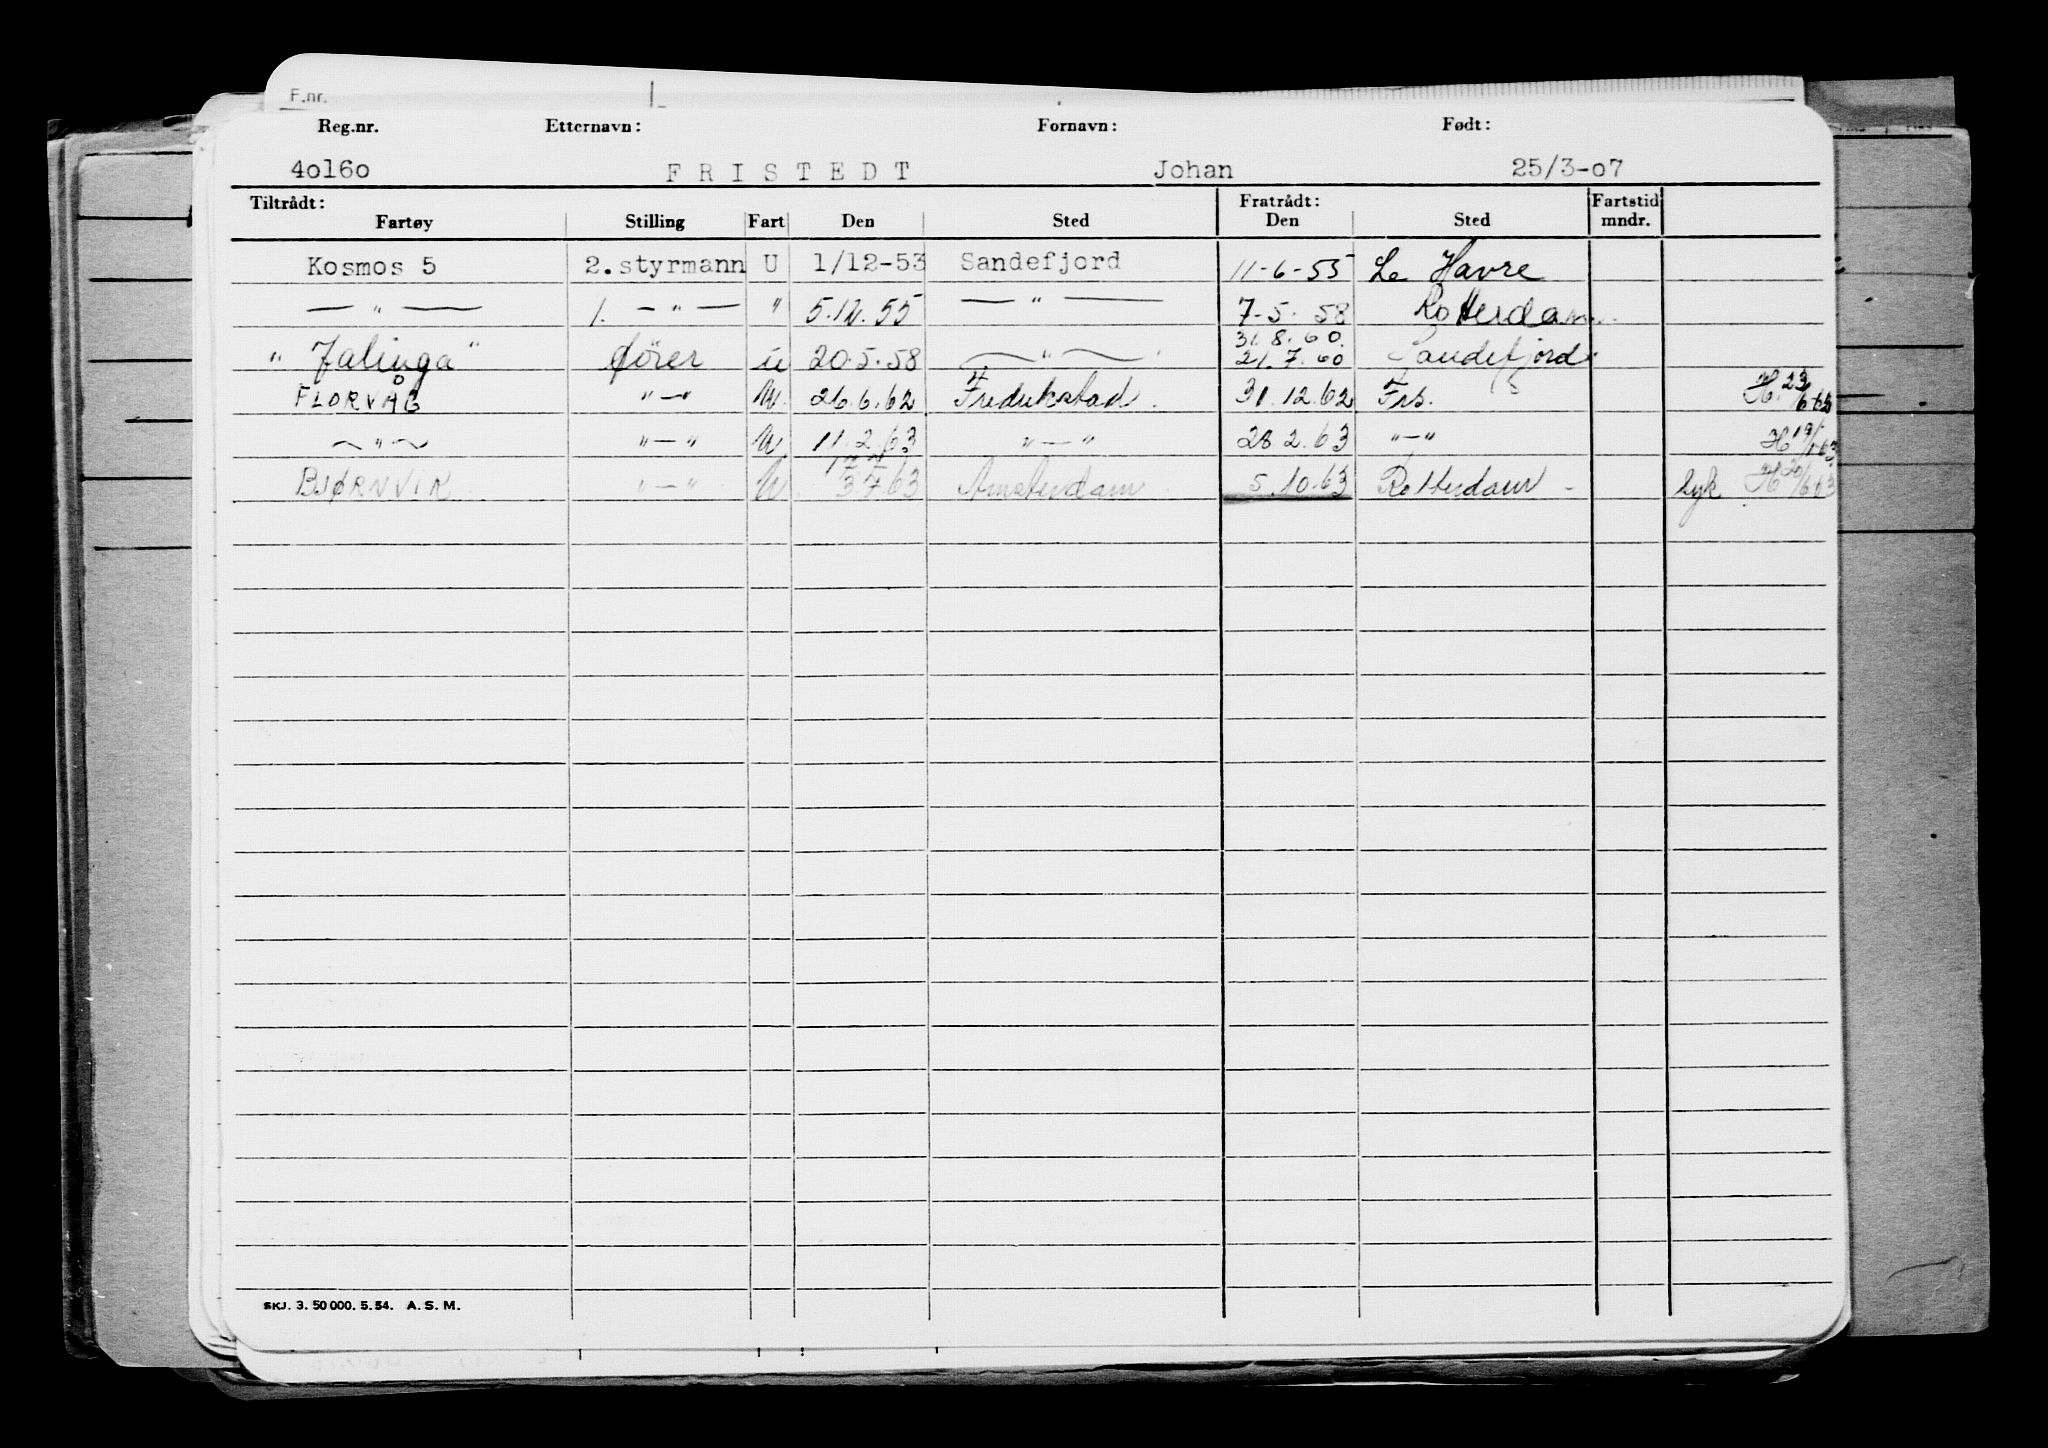 F.nr.
Reg.nr. Etternavn: Fornavn: Født:
4o16o F R I S T E D T Johan 25/3-o7
Tiltrådt: Fratrådt: Fartstid
Fartøy Stilling Fart Den Sted Den Sted mndr.
Kosmos 5 2.styrmann U 1/12-53 Sandefjord 11-6-55 Le Havre
— " — 1. — " — " 5.12.55 — " — 7-5-58 Rotterdam
31.8.60.
"Jalinga" fører u 20.5.58 — " — 21.7.60 Sandefjord
FLORVÅG "—" U 26.6.62 Fredrikstad 31.12.62 Frs. H. 23/6 62
— " — "—" U 11.2.63 "—" 28.2.63 "—" H 19/1 63
BJØRNVIK "—" U 3.7.63 Amsterdam 5.10.63 Rotterdam - syk H 20/6 63
SKJ. 3. 50 000. 5.54. A. S. M.